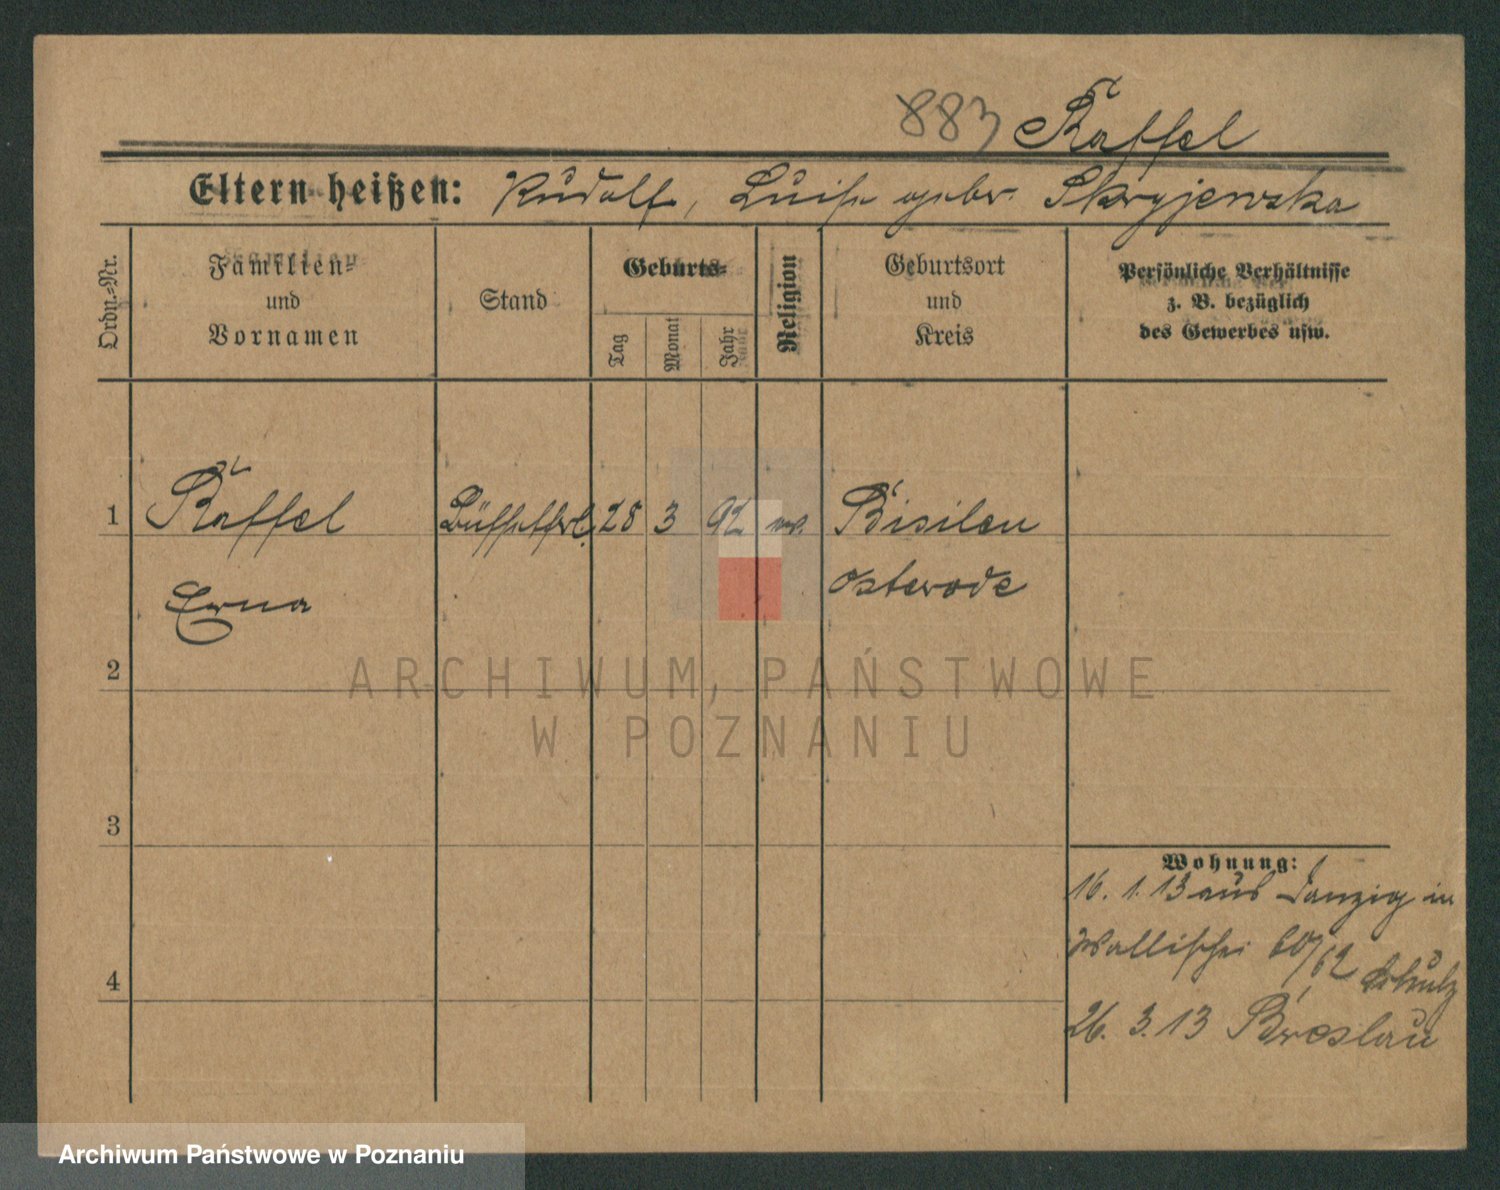 883 Raffel
Eltern heißen: Rudolf, Luise geber. Skryjewska
Ordn.-Nr.
Familien-
und
Vornamen
Stand
Geburts-
Tag
Monat
Jahr
Religion
Geburtsort
und
Kreis
Persönliche Verhältnisse
z. B. bezüglich
des Gewerbes usw.
1 Raffel Büffetfrl. 28 3 92 ev. Bisilen
Erna Osterode
2
3
4
Wohnung:
16. 1. 13 aus Danzig in
Wallischei 60/62 Schulz
26. 3. 13 Breslau
ARCHIWUM PAŃSTWOWE
W POZNANIU
Archiwum Państwowe w Poznaniu